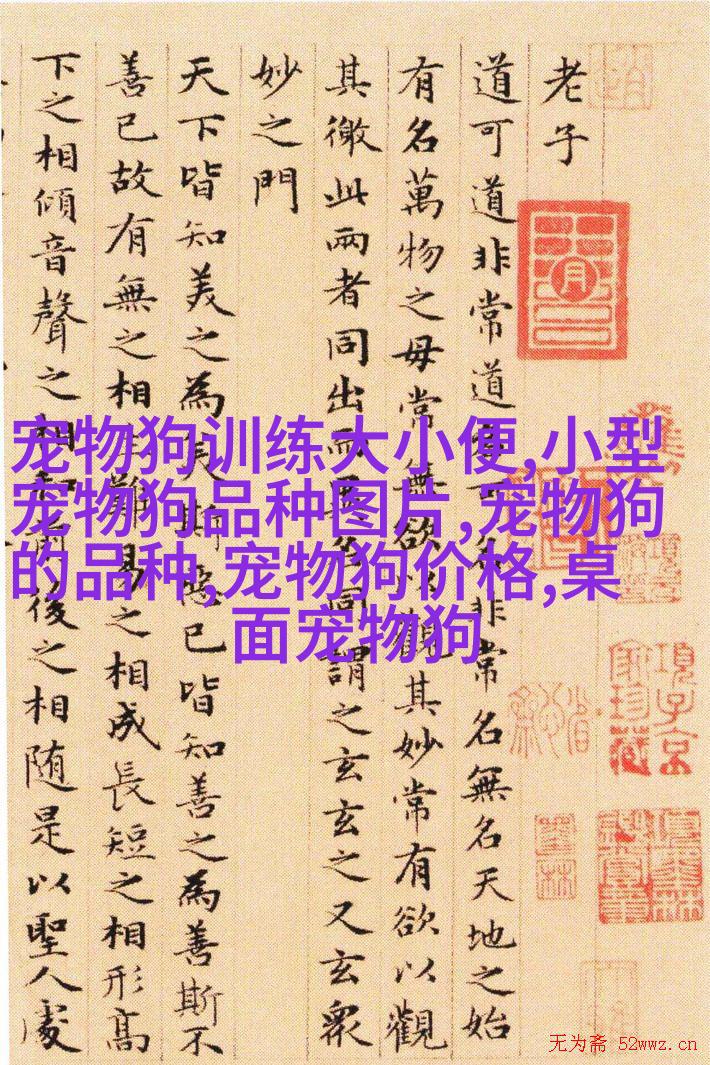 老子
道可道非常道名可名非常名無名天地之始
有名萬物之母常無欲以觀其妙常有欲以觀
其徼此兩者同出而異名同謂之玄玄之又玄衆
妙之門
天下皆知美之為美斯惡已皆知善之為善斯不
善已故有無之相生難易之相成長短之相形高
下之相傾音聲之相和前後之相随是以聖人處
宠物狗训练大小便,小型
宠物狗品种图片,宠物狗
的品种,宠物狗价格,桌
面宠物狗
項子京
家珍藏
无为斋 52wwz.cn